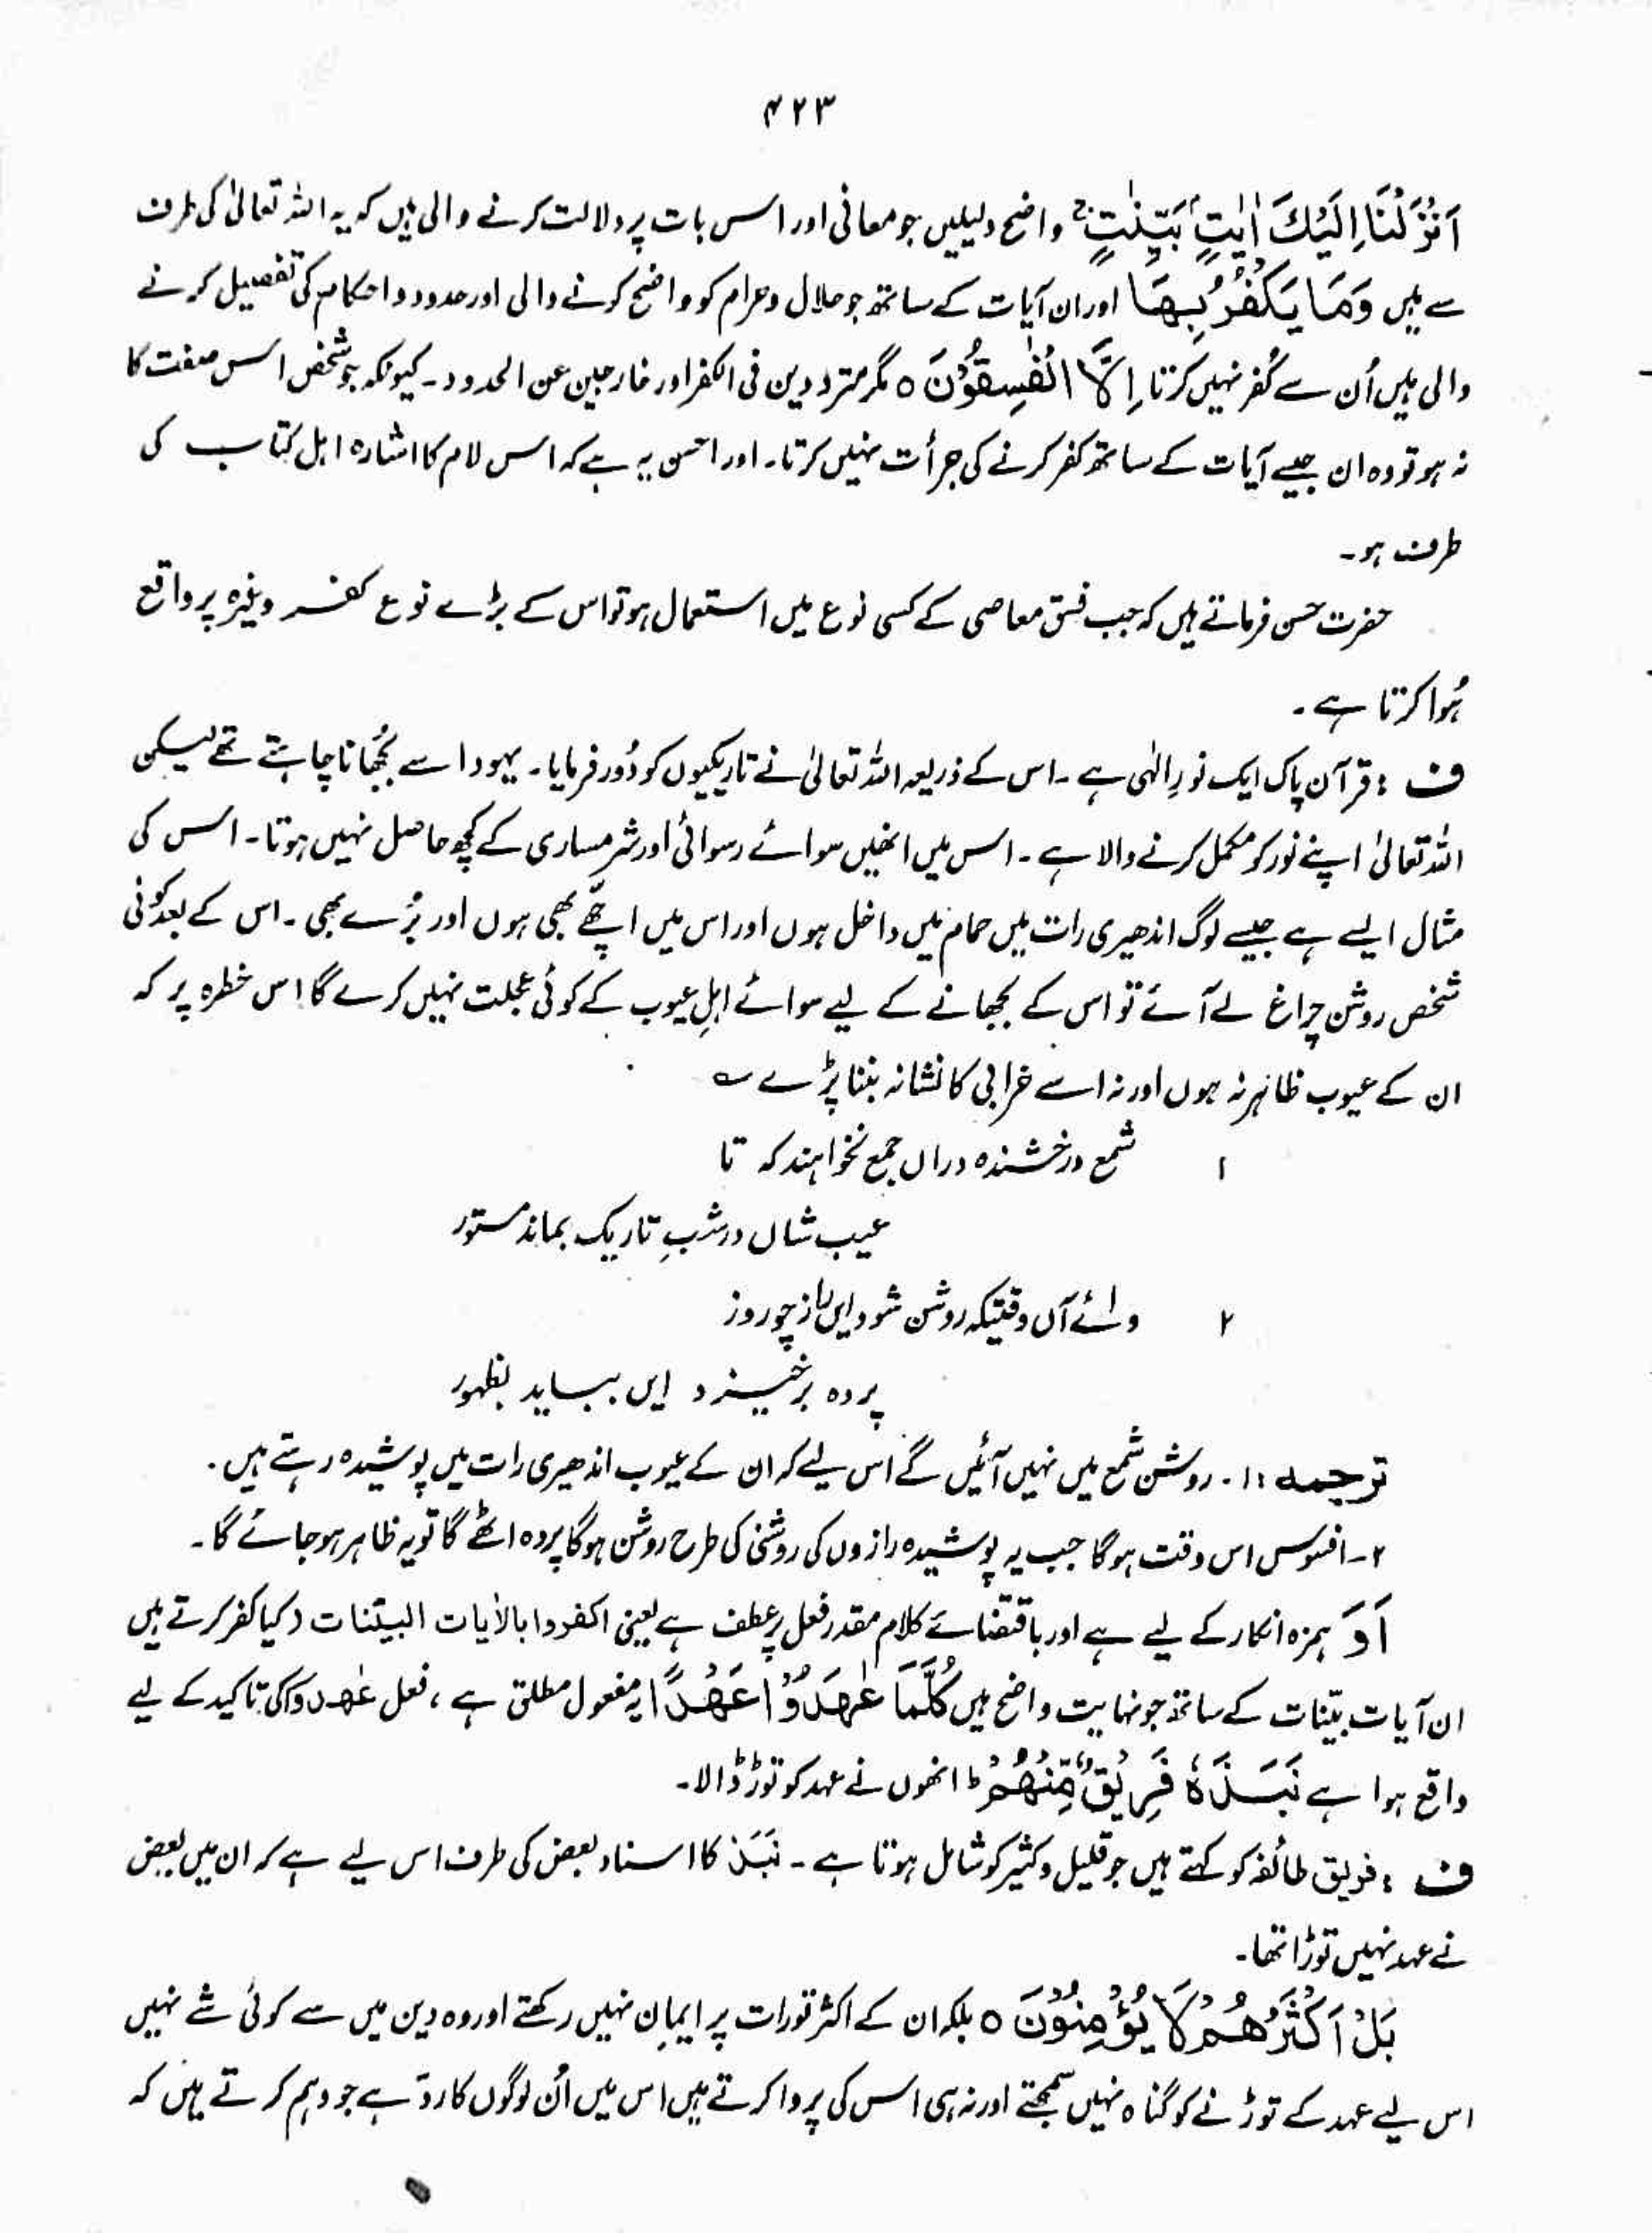 ۴۲۳
اَنْزَلْنَا اِلَيْكَ اٰيٰتٍۭ بَيِّنٰتٍ ۚ واضح دلیلیں جو معانی اور اس بات پر دلالت کرنے والی ہیں کہ یہ اللہ تعالیٰ کی طرف
سے ہیں وَمَا يَكْفُرُ بِهَا اور ان آیات کے ساتھ جو حلال و حرام کو واضح کرنے والی اور حدود و احکام کی تفصیل کرنے
والی ہیں اُن سے کُفر نہیں کرتا اِلَّا الْفٰسِقُوْنَ ○ مگر متردین فی الکفر اور خارجین عن الحدود۔ کیونکہ جو شخص اس صفت کا
نہ ہو تو وہ ان جیسے آیات کے ساتھ کفر کرنے کی جرأت نہیں کرتا۔ اور احسن یہ ہے کہ اس لام کا اشارہ اہل کتاب کی
طرف ہو۔
حضرت حسن فرماتے ہیں کہ جب فسق معاصی کے کسی نوع میں استعمال ہو تو اس کے بڑے نوع کفر وغیرہ پر واقع
ہُوا کرتا ہے۔
ف : قرآن پاک ایک نورِ الٰہی ہے۔ اس کے ذریعہ اللہ تعالیٰ نے تاریکیوں کو دُور فرمایا۔ یہود اسے بُجھانا چاہتے تھے لیکن
اللہ تعالیٰ اپنے نور کو مکمل کرنے والا ہے۔ اس میں انھیں سوائے رسوائی اور شرمساری کے کچھ حاصل نہیں ہوتا۔ اس کی
مثال ایسے ہے جیسے لوگ اندھیری رات میں حمام میں داخل ہوں اور اس میں اچھے بھی ہوں اور بُرے بھی۔ اس کے بعد کوئی
شخص روشن چراغ لے آئے تو اس کے بجھانے کے لیے سوائے اہلِ عیوب کے کوئی عجلت نہیں کرے گا اس خطرہ پر کہ
ان کے عیوب ظاہر نہ ہوں اور نہ اسے خرابی کا نشانہ بننا پڑے ؎
۱ شمع درخشندہ دراں جمع نخواہند کہ تا
عیب شاں در شبِ تاریک بماند مستور
۲ وائے آں وقتیکہ روشن شود ایں راز چو روز
پردہ برخیزد ایں بیاید بظہور
ترجمہ : ۱۔ روشن شمع میں نہیں آئیں گے اس لیے کہ ان کے عیوب اندھیری رات میں پوشیدہ رہتے ہیں۔
۲۔ افسوس اس وقت ہوگا جب یہ پوشیدہ رازوں کی روشنی کی طرح روشن ہوگا پردہ اٹھے گا تو یہ ظاہر ہو جائے گا۔
اَوَ ہمزہ انکار کے لیے ہے اور باقتضائے کلام مقدر فعل پر عطف ہے یعنی اکفروا بالاٰیات البیّنات (کیا کفر کرتے ہیں
ان آیات بیّنات کے ساتھ جو نہایت واضح ہیں كُلَّمَا عٰهَدُوْا عَهْدًا یہ مفعول مطلق ہے ، فعل عٰھدوا کی تاکید کے لیے
واقع ہوا ہے نَبَذَهٗ فَرِيْقٌ مِّنْهُمْ ؕ انھوں نے عہد کو توڑ ڈالا۔
ف : فریق طائفہ کو کہتے ہیں جو قلیل و کثیر کو شامل ہوتا ہے۔ نَبَذَ کا اسناد بعض کی طرف اس لیے ہے کہ ان میں بعض
نے عہد نہیں توڑا تھا۔
بَلْ اَكْثَرُهُمْ لَا يُؤْمِنُوْنَ ○ بلکہ ان کے اکثر تورات پر ایمان نہیں رکھتے اور وہ دین میں سے کوئی شے نہیں
اس لیے عہد کے توڑنے کو گناہ نہیں سمجھتے اور نہ ہی اس کی پروا کرتے ہیں اس میں اُن لوگوں کا ردّ ہے جو وہم کرتے ہیں کہ